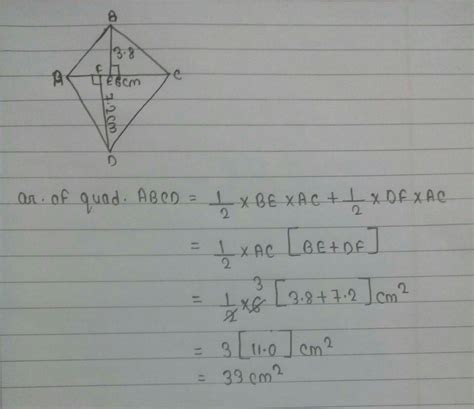 B
3.8
A F E 6cm C
7.2cm
D
ar. of quad. ABCD = 1/2 × BE × AC + 1/2 × DF × AC
= 1/2 × AC [BE + DF]
= 1/2 × 6 3 [3.8 + 7.2] cm²
= 3 [11.0] cm²
= 33 cm²